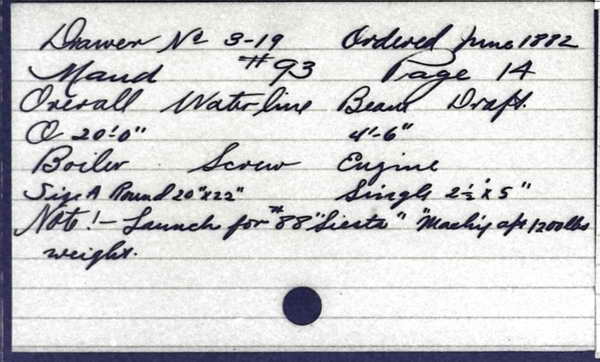 Drawer No 3-19 Ordered June 1882
Maud #93 Page 14
Overall Waterline Beam Draft.
O 20'-0" 4'-6"
Boiler Screw Engine
Size A Round 20"x22" Single 2½"x5"
Note!- Launch for #88 "Siesta" "Mach'y apx 1200 lbs
weight.